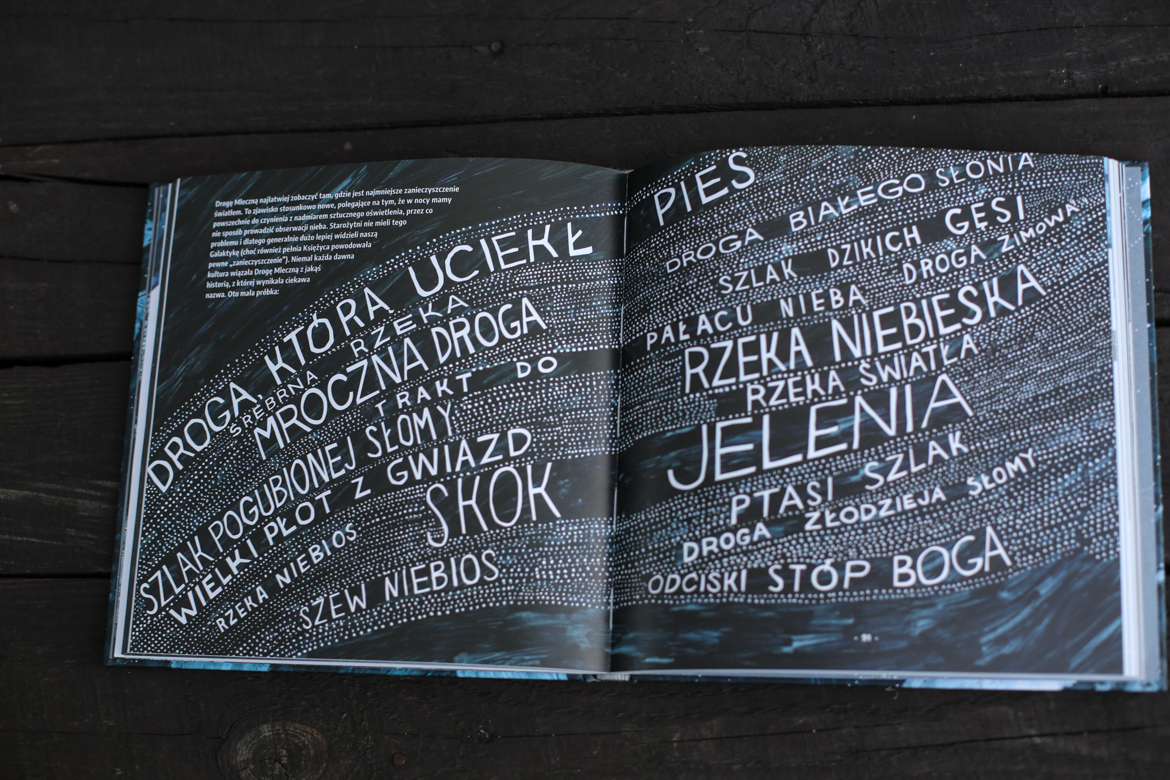 Drogę Mleczną najłatwiej zobaczyć tam, gdzie jest najmniejsze zanieczyszczenie
światłem. To zjawisko stosunkowo nowe, polegające na tym, że w nocy mamy
powszechnie do czynienia z nadmiarem sztucznego oświetlenia, przez co
nie sposób prowadzić obserwacji nieba. Starożytni nie mieli tego
problemu i dlatego generalnie dużo lepiej widzieli naszą
Galaktykę (choć również pełnia Księżyca powodowała
pewne „zanieczyszczenie”). Niemal każda dawna
kultura wiązała Drogę Mleczną z jakąś
historią, z której wynikała ciekawa
nazwa. Oto mała próbka:
DROGA, KTÓRĄ UCIEKŁ PIES
SREBRNA RZEKA
DROGA BIAŁEGO SŁONIA
MROCZNA DROGA
SZLAK DZIKICH GĘSI
TRAKT DO PAŁACU NIEBA
DROGA ZIMOWA
SZLAK POGUBIONEJ SŁOMY
RZEKA NIEBIESKA
WIELKI PŁOT Z GWIAZD
RZEKA ŚWIATŁA
RZEKA NIEBIOS
SKOK JELENIA
PTASI SZLAK
SZEW NIEBIOS
DROGA ZŁODZIEJA SŁOMY
ODCISKI STÓP BOGA